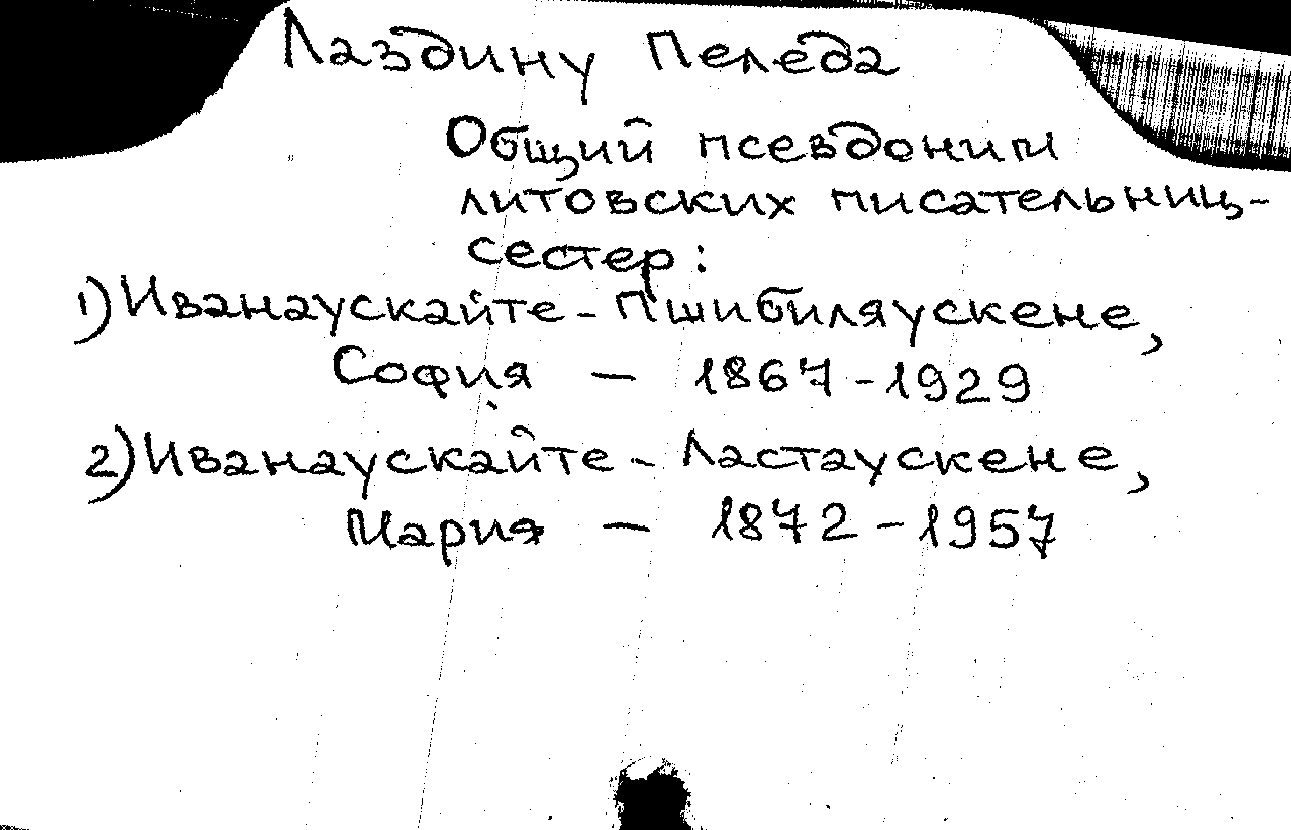 Лаздину Пеледа
Общий псевдоним
литовских писательниц-
сестер:
1) Иванаускайте - Пшибиляускене,
София – 1867 - 1929
2) Иванаускайте - Ластаускене,
Мария – 1872 - 1957